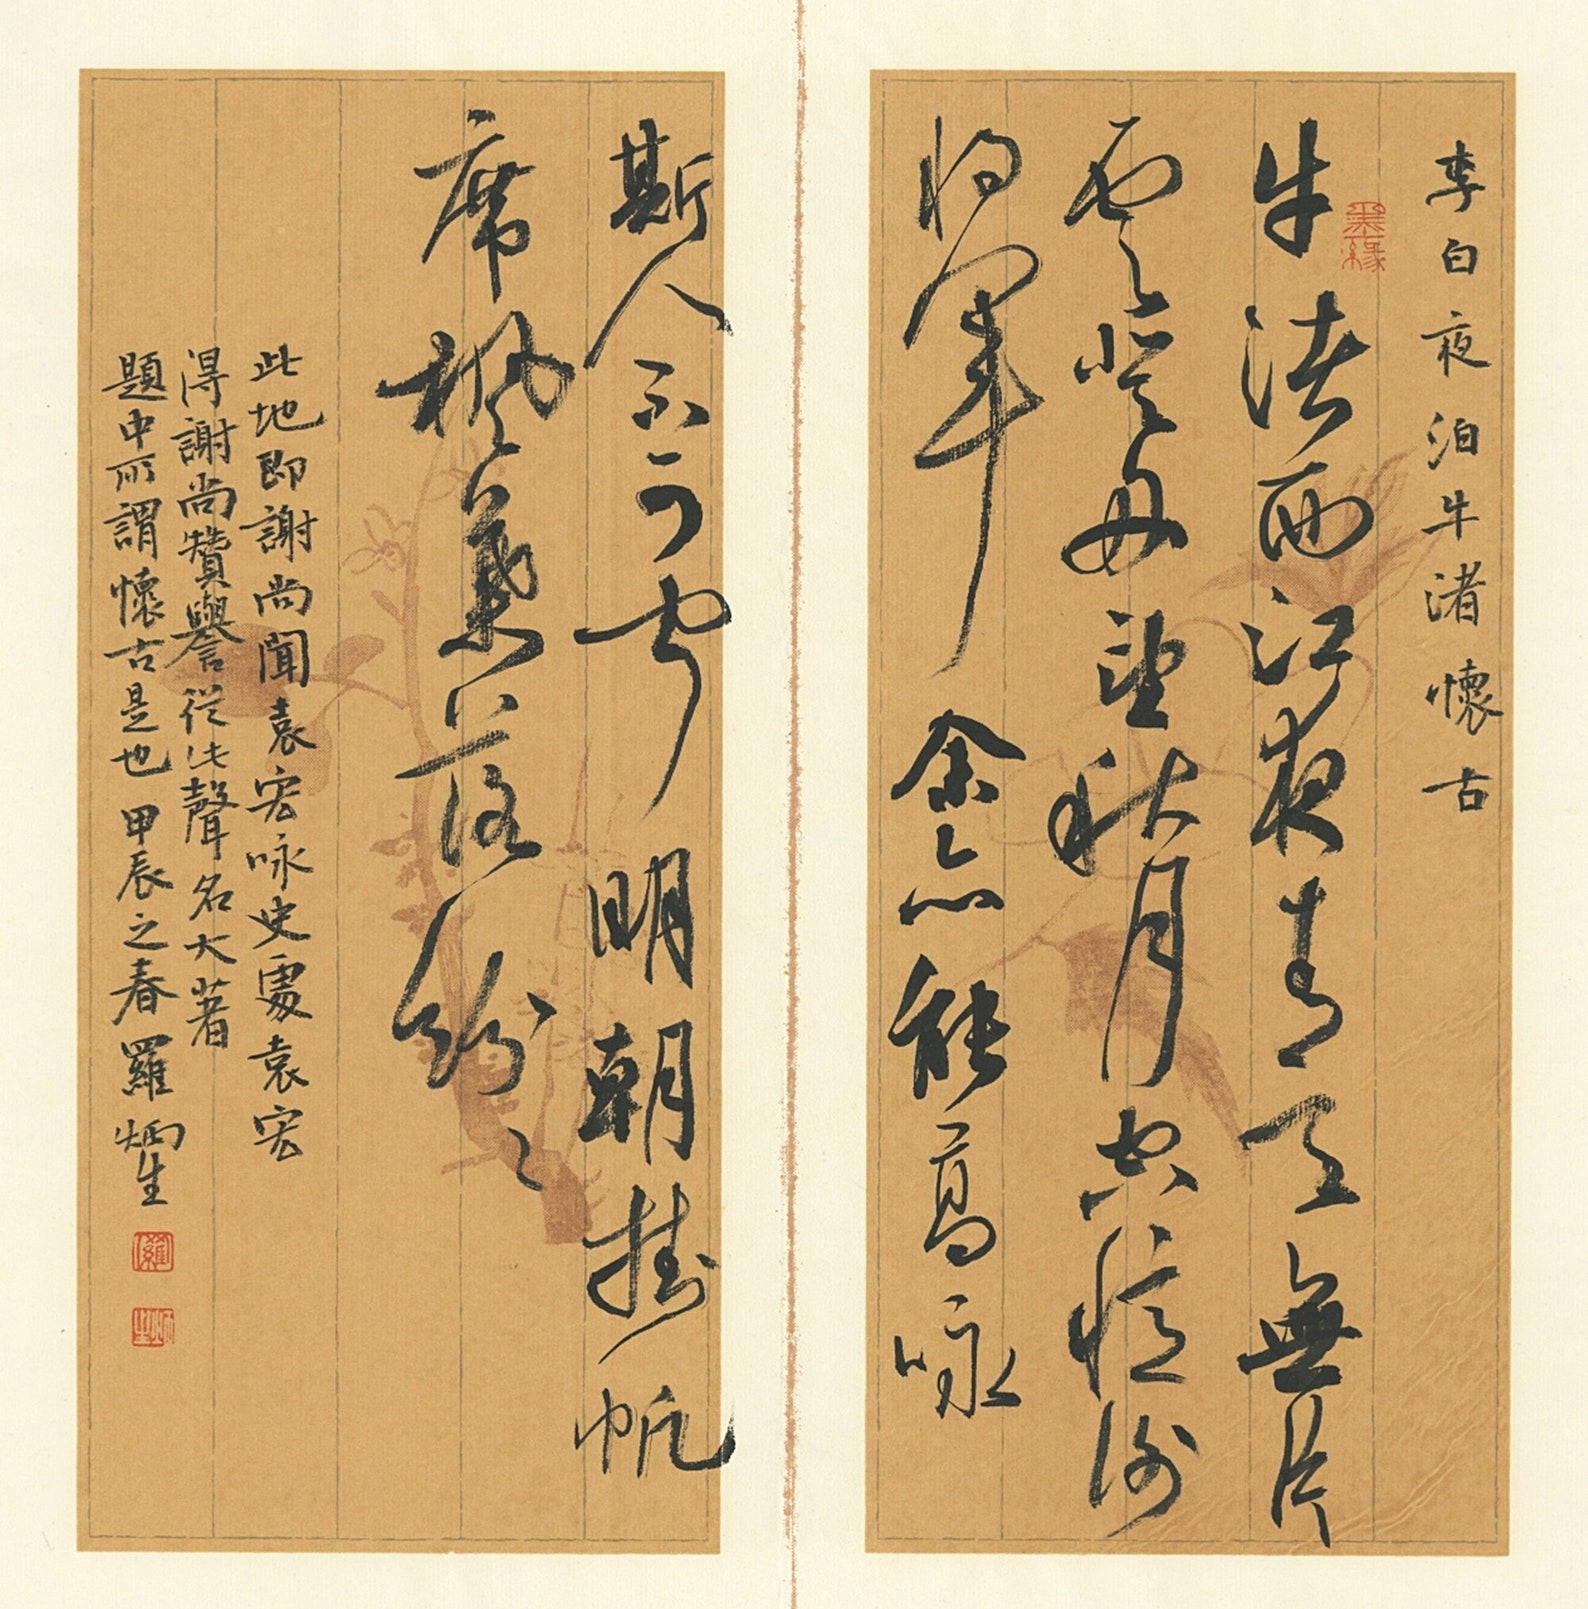 李白夜泊牛渚懷古
牛渚西江夜青天無片
雲登舟望秋月空憶謝
將軍余亦能高咏
斯人不可聞明朝掛帆
席楓葉落紛〻
此地即謝尚聞袁宏咏史處袁宏
得謝尚贊譽從此聲名大著
題中所謂懷古是也甲辰之春羅炳生
墨緣
羅
炳生